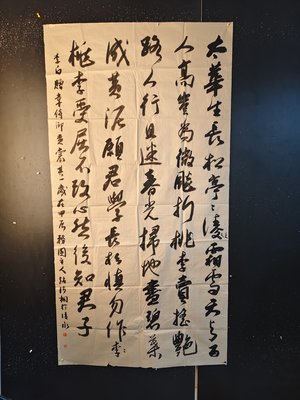 太華生長松亭〻凌霜雪天与百
尺高豈為微飈折桃李賣陽艷
路人行且迷春光掃地盡碧葉
成黄泥願君學長松慎勿作李
桃李受屈不改心然後知君子
李白贈韋侍御黄裳其一歲在甲辰園主人於